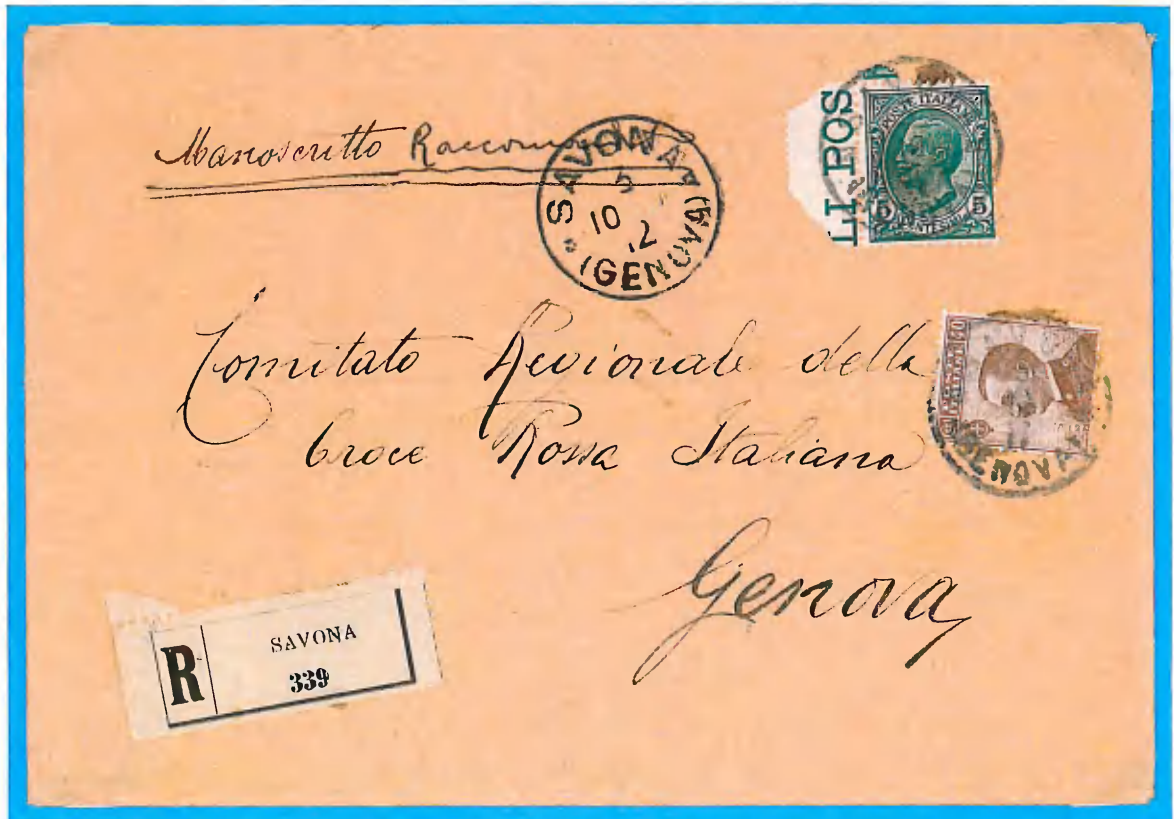 Manoscritto
SAVONA
10
12
(GENOVA)
LI POS
POSTE ITALIANE
5 5
CENTESIMI
Comitato Regionale della
Croce Rossa Italiana
40
Genova
R
SAVONA
339